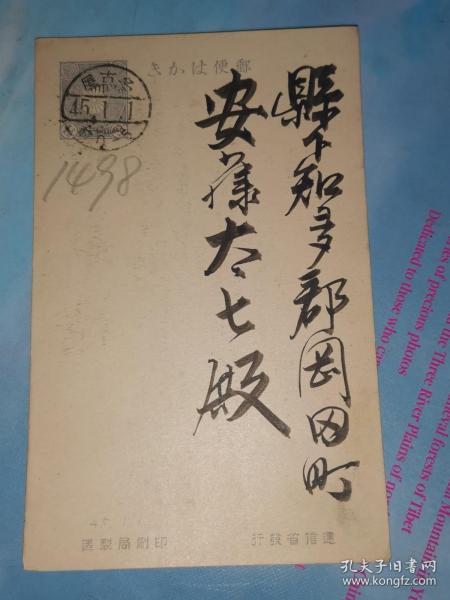 郵便はがき
縣下知多郡岡田町
安藤太七殿
名古屋
45.1.1
1498
遞信省發行
印刷局製造
ries of precious photos
Dedicated to those who
the Three River Plains of
forests of Tibet
Mountain
孔夫子旧书网
kongfz.com